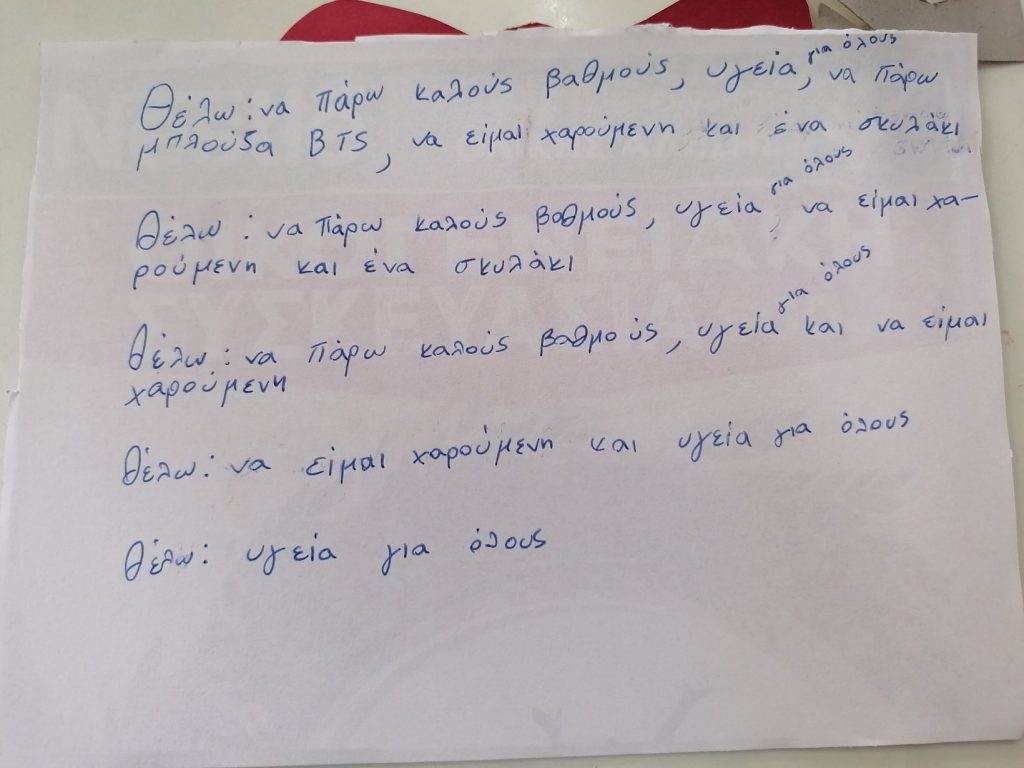 Θέλω: να πάρω καλούς βαθμούς, υγεία για όλους, να πάρω
μπλούζα BTS, να είμαι χαρούμενη και ένα σκυλάκι
Θέλω: να πάρω καλούς βαθμούς, υγεία για όλους, να είμαι χα-
ρούμενη και ένα σκυλάκι
Θέλω: να πάρω καλούς βαθμούς, υγεία για όλους και να είμαι
χαρούμενη
Θέλω: να είμαι χαρούμενη και υγεία για όλους
Θέλω: υγεία για όλους
ΣΥΣΚΕΥΑΣΙΑ